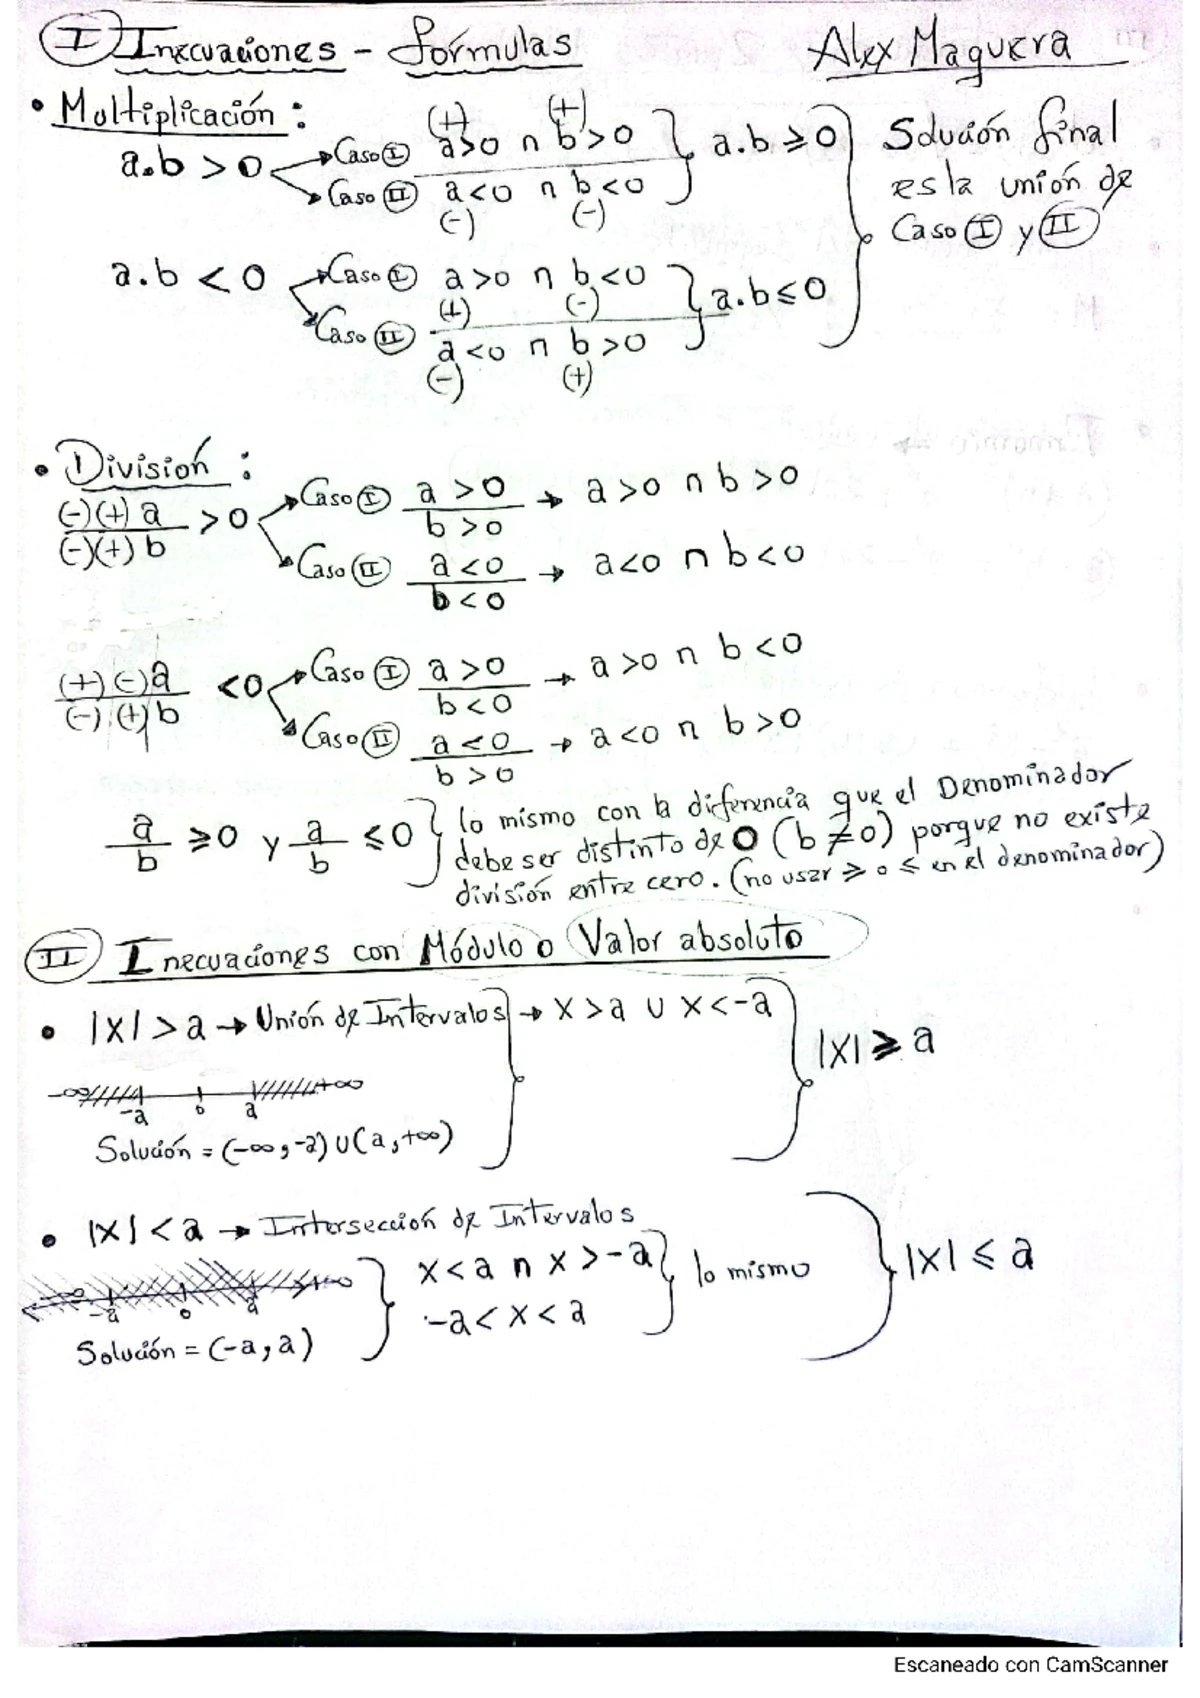 I Inecuaciones - fórmulas Alex Maquera
• Multiplicación:
(+) (+)
a.b > 0 Caso I a>0 ∩ b>0 } a.b ⩾ 0 Solución final
Caso II a<0 ∩ b<0 es la unión de
(-) (-) Caso I y II
a.b < 0 Caso I a>0 ∩ b<0 } a.b ⩽ 0
(+) (-)
Caso II a<0 ∩ b>0
(-) (+)
• División:
(-)(+) a / (-)(+) b > 0 Caso I a>0 / b>0 → a>0 ∩ b>0
Caso II a<0 / b<0 → a<0 ∩ b<0
(+)(-) a / (-)(+) b <0 Caso I a>0 / b<0 → a>0 ∩ b<0
Caso II a<0 / b>0 → a<0 ∩ b>0
a/b ⩾0 y a/b ⩽0 } lo mismo con la diferencia que el Denominador
debe ser distinto de 0 (b ≠ 0) porque no existe
división entre cero. (no usar ⩾ o ⩽ en el denominador)
II Inecuaciones con Módulo o Valor absoluto
• |x| > a → Unión de Intervalos → x>a ∪ x<-a } |x| ⩾ a
-∞ -a 0 a +∞
Solución = (-∞, -a) ∪ (a, +∞)
• |x| < a → Intersección de Intervalos
-∞ -a 0 a +∞ } x<a ∩ x>-a } lo mismo } |x| ⩽ a
-a < x < a
Solución = (-a, a)
Escaneado con CamScanner